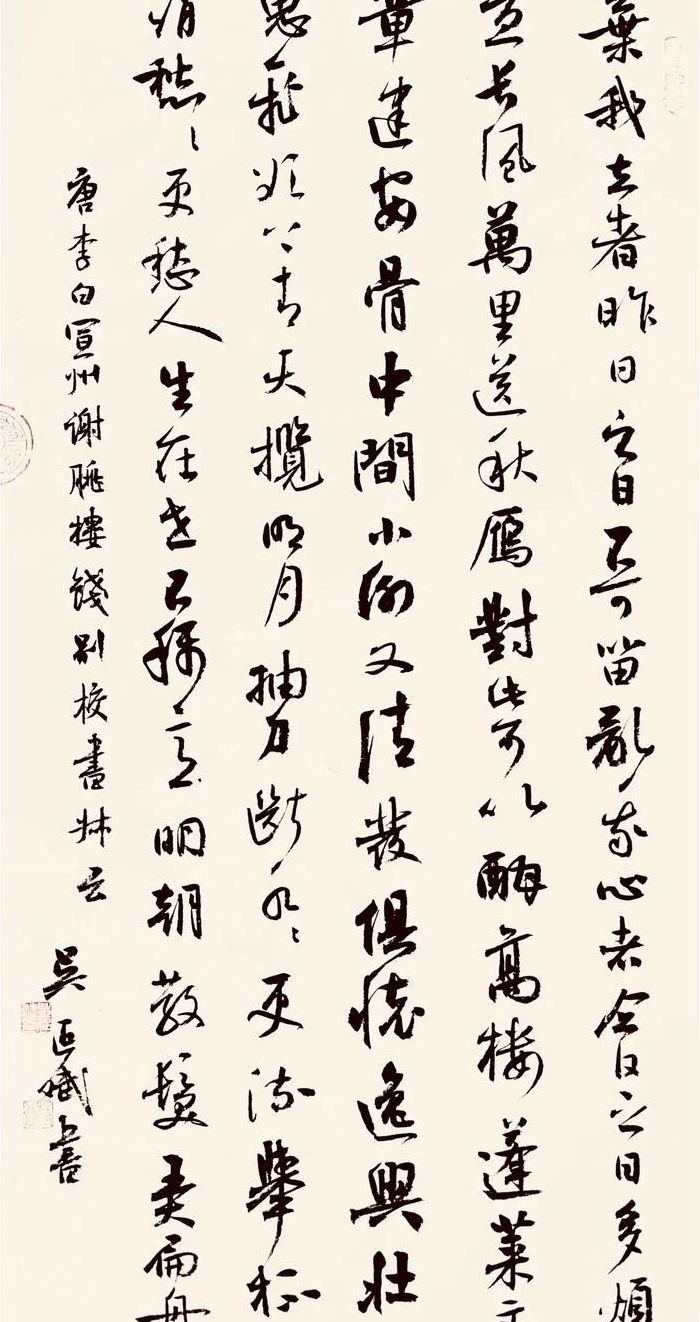 棄我去者昨日之日不可留亂我心者今日之日多煩
長風萬里送秋雁對此可以酣高樓蓬萊文
章建安骨中間小謝又清發俱懷逸興壯
思飛欲上青天攬明月抽刀斷水々更流舉杯
消愁々更愁人生在世不稱意明朝散髮弄扁舟
唐李白宣州謝朓樓餞別校書叔云
吳斌書